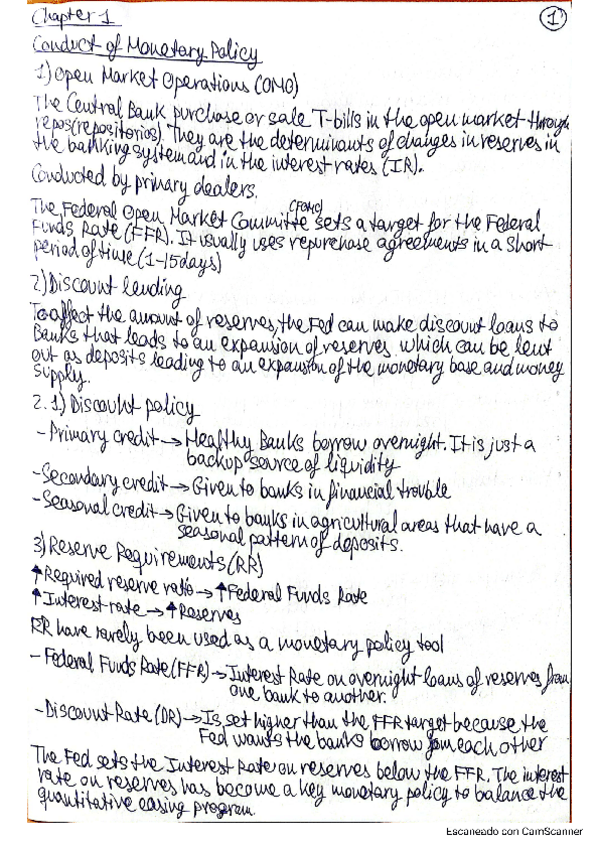 Chapter 1
1
Conduct of Monetary Policy
1) Open Market Operations (OMO)
The Central Bank purchase or sale T-bills in the open market through
repos (repositorios). They are the determinants of changes in reserves in
the banking system and in the interest rates (IR).
Conducted by primary dealers.
The Federal Open Market Committe (FOMC) sets a target for the Federal
Funds Rate (FFR). It usually uses repurchase agreements in a short
period of time (1-15 days)
2) Discount lending
To affect the amount of reserves, the Fed can make discount loans to
Banks that leads to an expansion of reserves which can be lent
out as deposits leading to an expansion of the monetary base and money
supply.
2.1) Discount policy
- Primary credit → Healthy Banks borrow overnight. It is just a
backup source of liquidity
- Secondary credit → Given to banks in financial trouble
- Seasonal credit → Given to banks in agricultural areas that have a
seasonal pattern of deposits.
3) Reserve Requirements (RR)
↑ Required reserve ratio → ↑ Federal Funds Rate
↑ Interest rate → ↑ Reserves
RR have rarely been used as a monetary policy tool
- Federal Funds Rate (FFR) → Interest Rate on overnight loans of reserves from
one bank to another.
- Discount Rate (DR) → Is set higher than the FFR target because the
Fed wants the banks borrow from each other
The Fed sets the Interest Rate on reserves below the FFR. The interest
rate on reserves has become a key monetary policy to balance the
quantitative easing program.
Escaneado con CamScanner